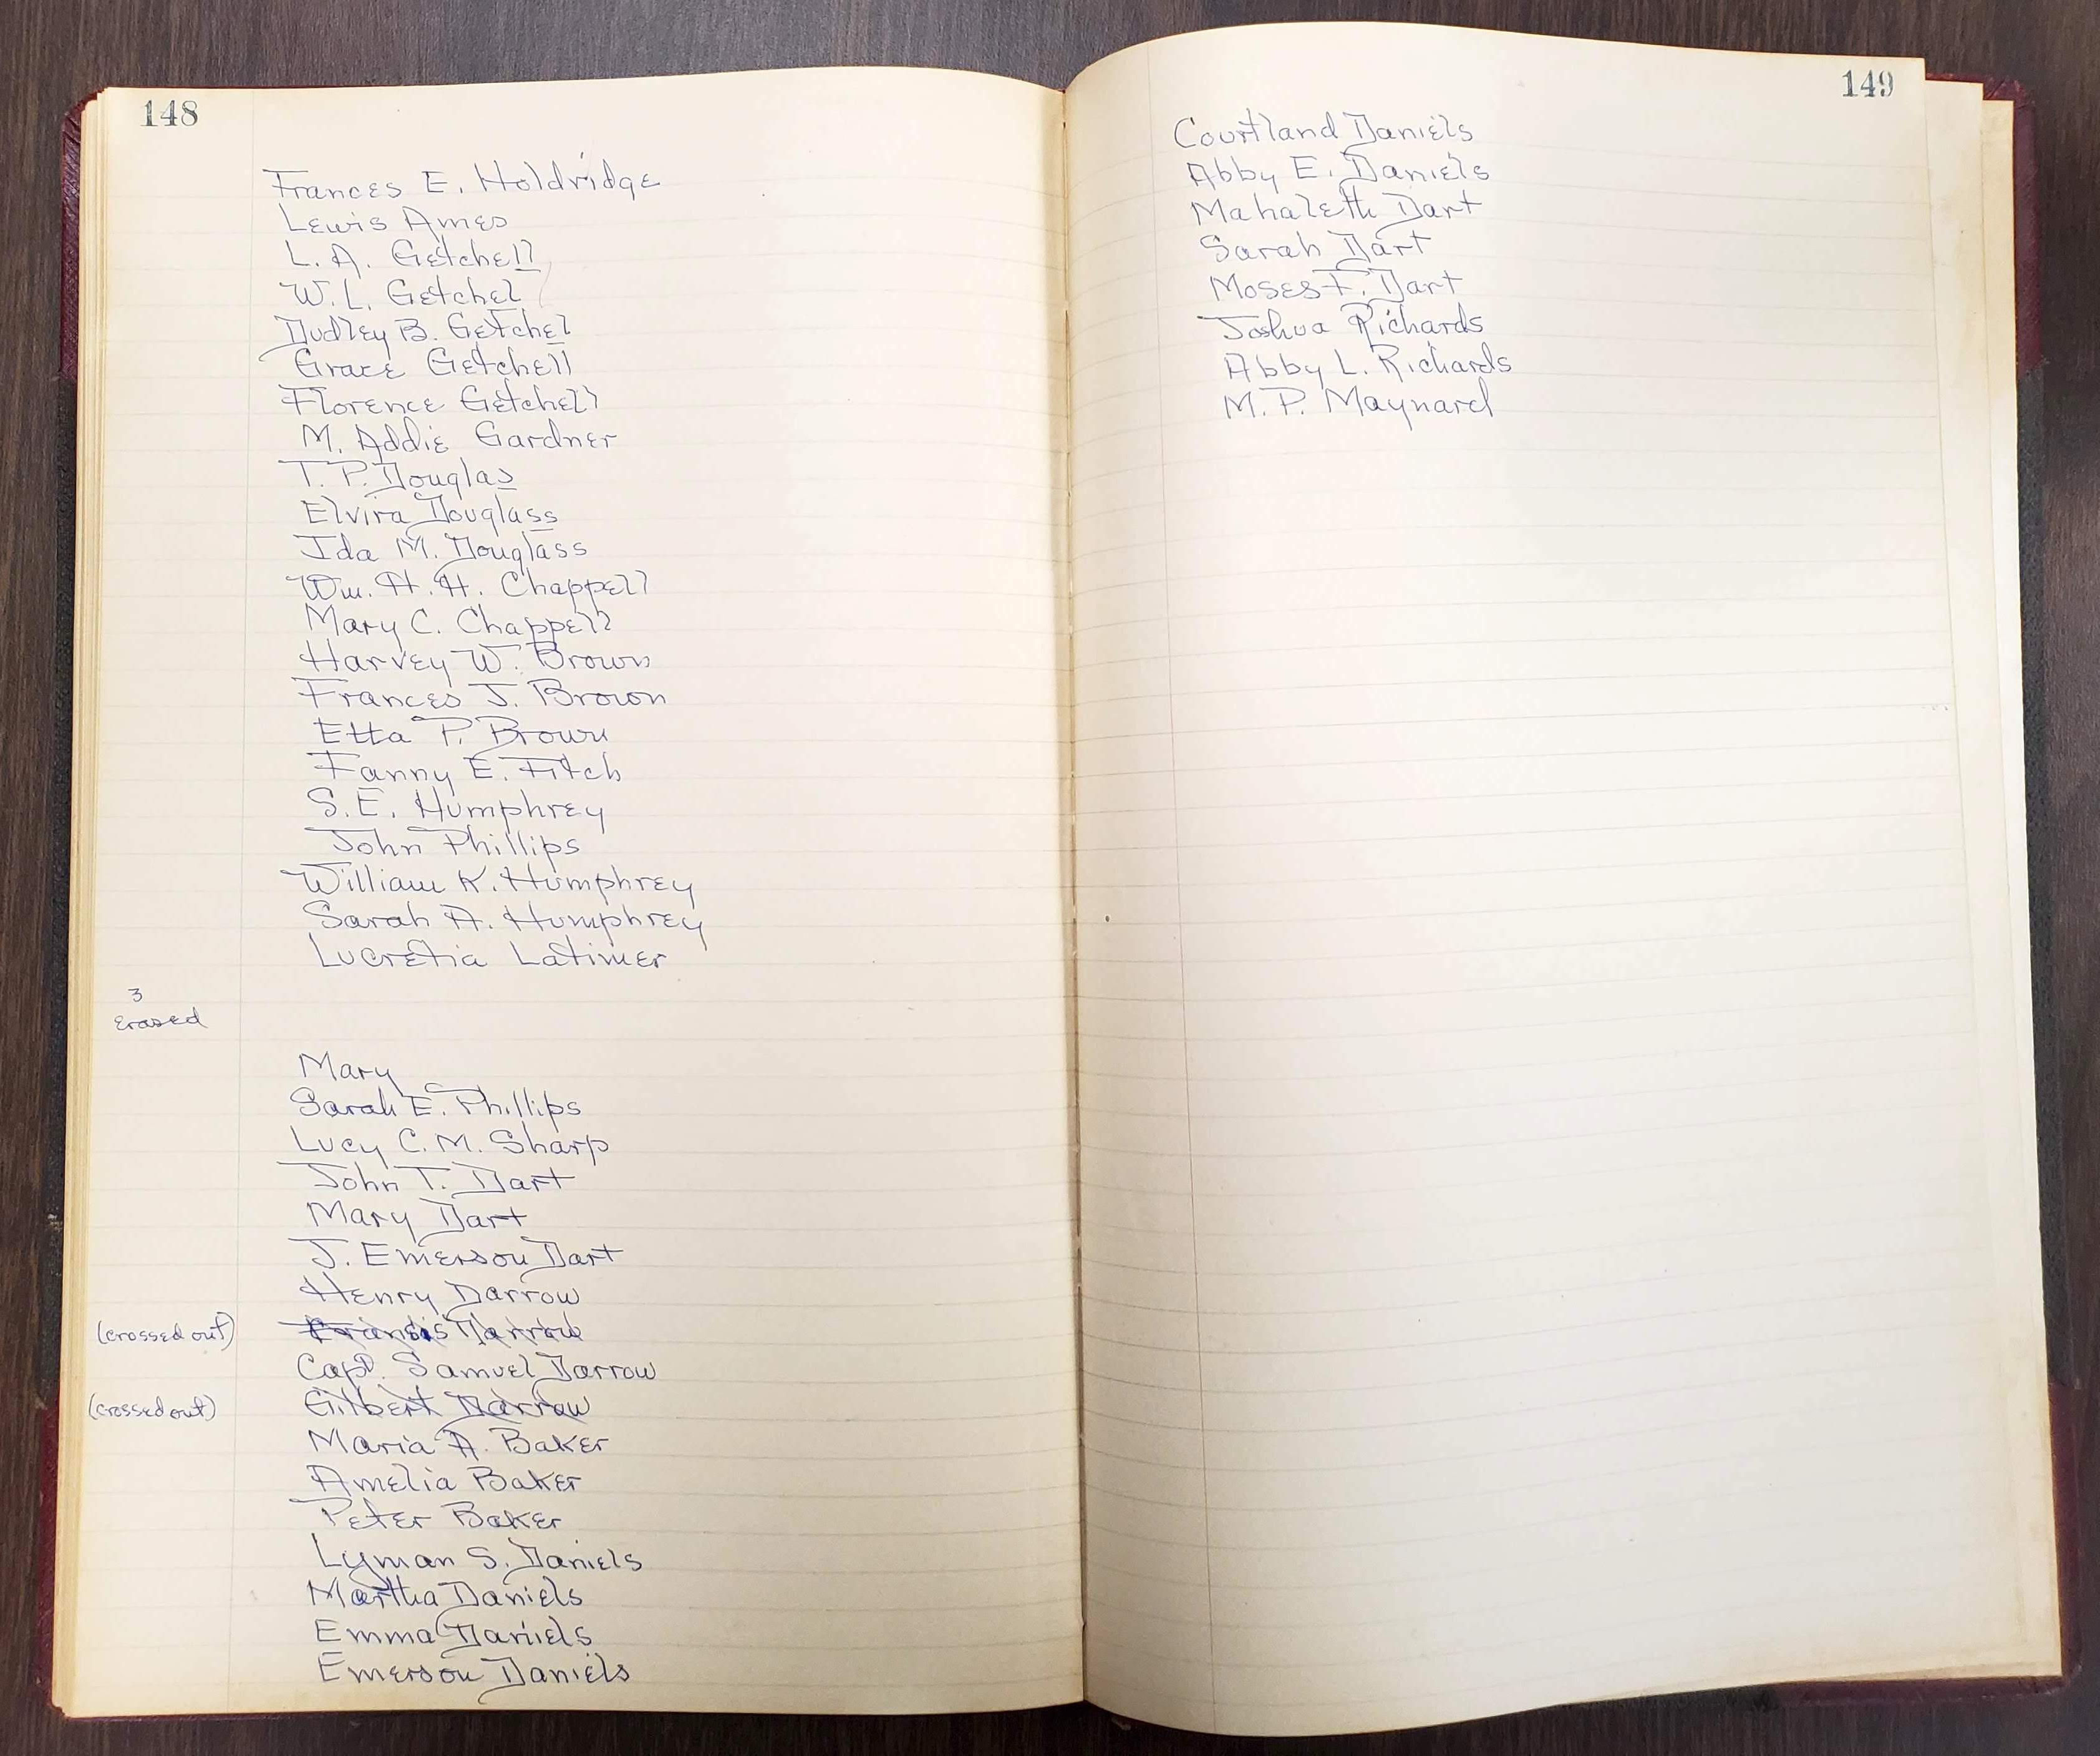 148
Frances E. Holdridge
Lewis Ames
L. A. Getchell
W. L. Getchel
Dudley B. Getchel
Grace Getchell
Florence Getchell
M. Addie Gardner
T. P. Douglas
Elvira Douglass
Ida M. Douglass
Wm. H. H. Chappell
Mary C. Chappell
Harvey W. Brown
Frances J. Brown
Etta P. Brown
Fanny E. Fitch
S. E. Humphrey
John Phillips
William K. Humphrey
Sarah A. Humphrey
Lucretia Latimer
3
Erased
Mary
Sarah E. Phillips
Lucy C. M. Sharp
John T. Dart
Mary Dart
J. Emerson Dart
Henry Darrow
(crossed out) Francis Darrow
Capt. Samuel Darrow
(crossed out) Gilbert Darrow
Maria A. Baker
Amelia Baker
Peter Baker
Lyman S. Daniels
Martha Daniels
Emma Daniels
Emerson Daniels
149
Courtland Daniels
Abby E. Daniels
Mahaleth Dart
Sarah Dart
Moses F. Dart
Joshua Richards
Abby L. Richards
M. P. Maynard